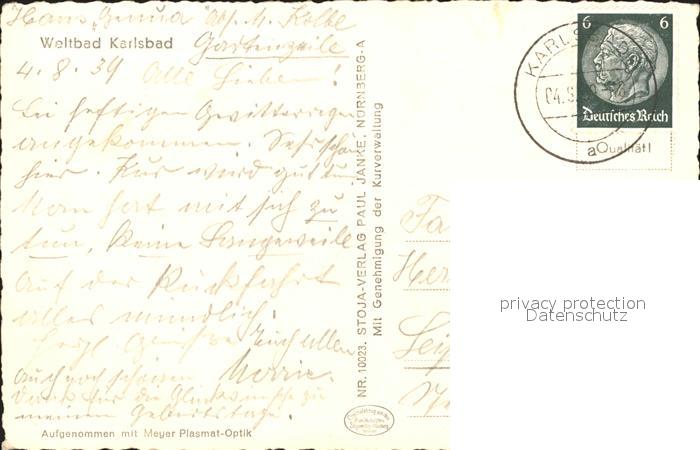 Haus "Genua" Abs. M. Kolbe
Weltbad Karlsbad Gartenzeile
4. 8. 39 Alle Lieben!
Bei heftigen Gewitterregen
angekommen. Sehr schön
hier. Kur wird gut tun
Man hat mit sich zu
tun, keine Langeweile
Auf der Rückfahrt
alles mündlich.
Herzl. Grüsse Euch allen
Auch noch schönen
Dank für die Glückwünsche zu
meinem Geburtstage.
Aufgenommen mit Meyer Plasmat-Optik
NR. 10023. STOJA-VERLAG PAUL JANKE, NÜRNBERG-A
Mit Genehmigung der Kurverwaltung
6 6
Deutsches Reich
KARLSBAD
04.8
a Qualität!
Fa
Her
Leip
privacy protection
Datenschutz